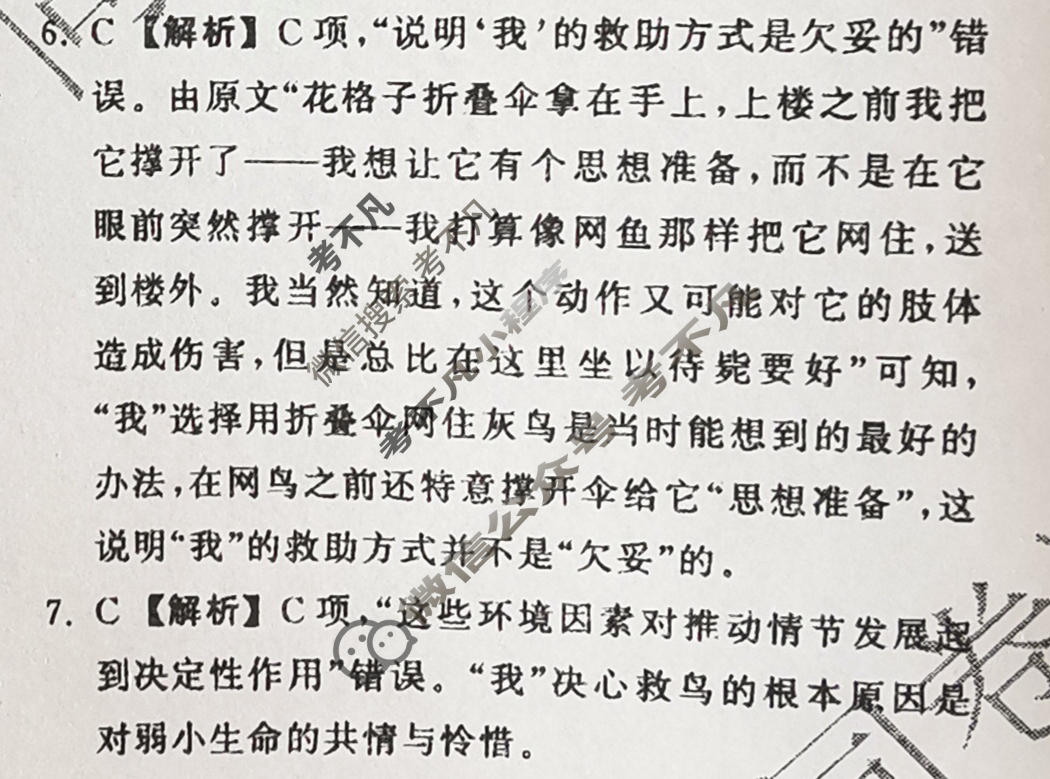 6. C【解析】C 项，“说明‘我’的救助方式是欠妥的”错
误。由原文“花格子折叠伞拿在手上，上楼之前我把
它撑开了——我想让它有个思想准备，而不是在它
眼前突然撑开——我打算像网鱼那样把它网住，送
到楼外。我当然知道，这个动作又可能对它的肢体
造成伤害，但是总比在这里坐以待毙要好”可知，
“我”选择用折叠伞网住灰鸟是当时能想到的最好的
办法，在网鸟之前还特意撑开伞给它“思想准备”，这
说明“我”的救助方式并不是“欠妥”的。
7. C【解析】C 项，“这些环境因素对推动情节发展起
到决定性作用”错误。“我”决心救鸟的根本原因是
对弱小生命的共情与怜惜。
考不凡
微信搜索 考不凡
考不凡小程序
微信公众号 考不凡
卷